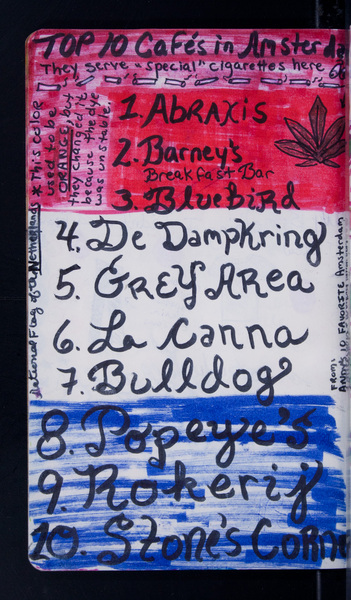 TOP 10 Cafés in Amsterda
They serve "special" cigarettes here
1. ABRAXIS
2. Barney's
Breakfast Bar
3. BlueBiRD
4. De DampKring
5. GREY AREA
6. La Canna
7. Bulldog
8. Popeye's
9. Rokerij
10. Stone's CoRne
* This color
used to be
ORANGE, but
they changed it
because the dye
was unstable.
National Flag of the Netherlands
FROM:
10 FAVORITE Amsterdam